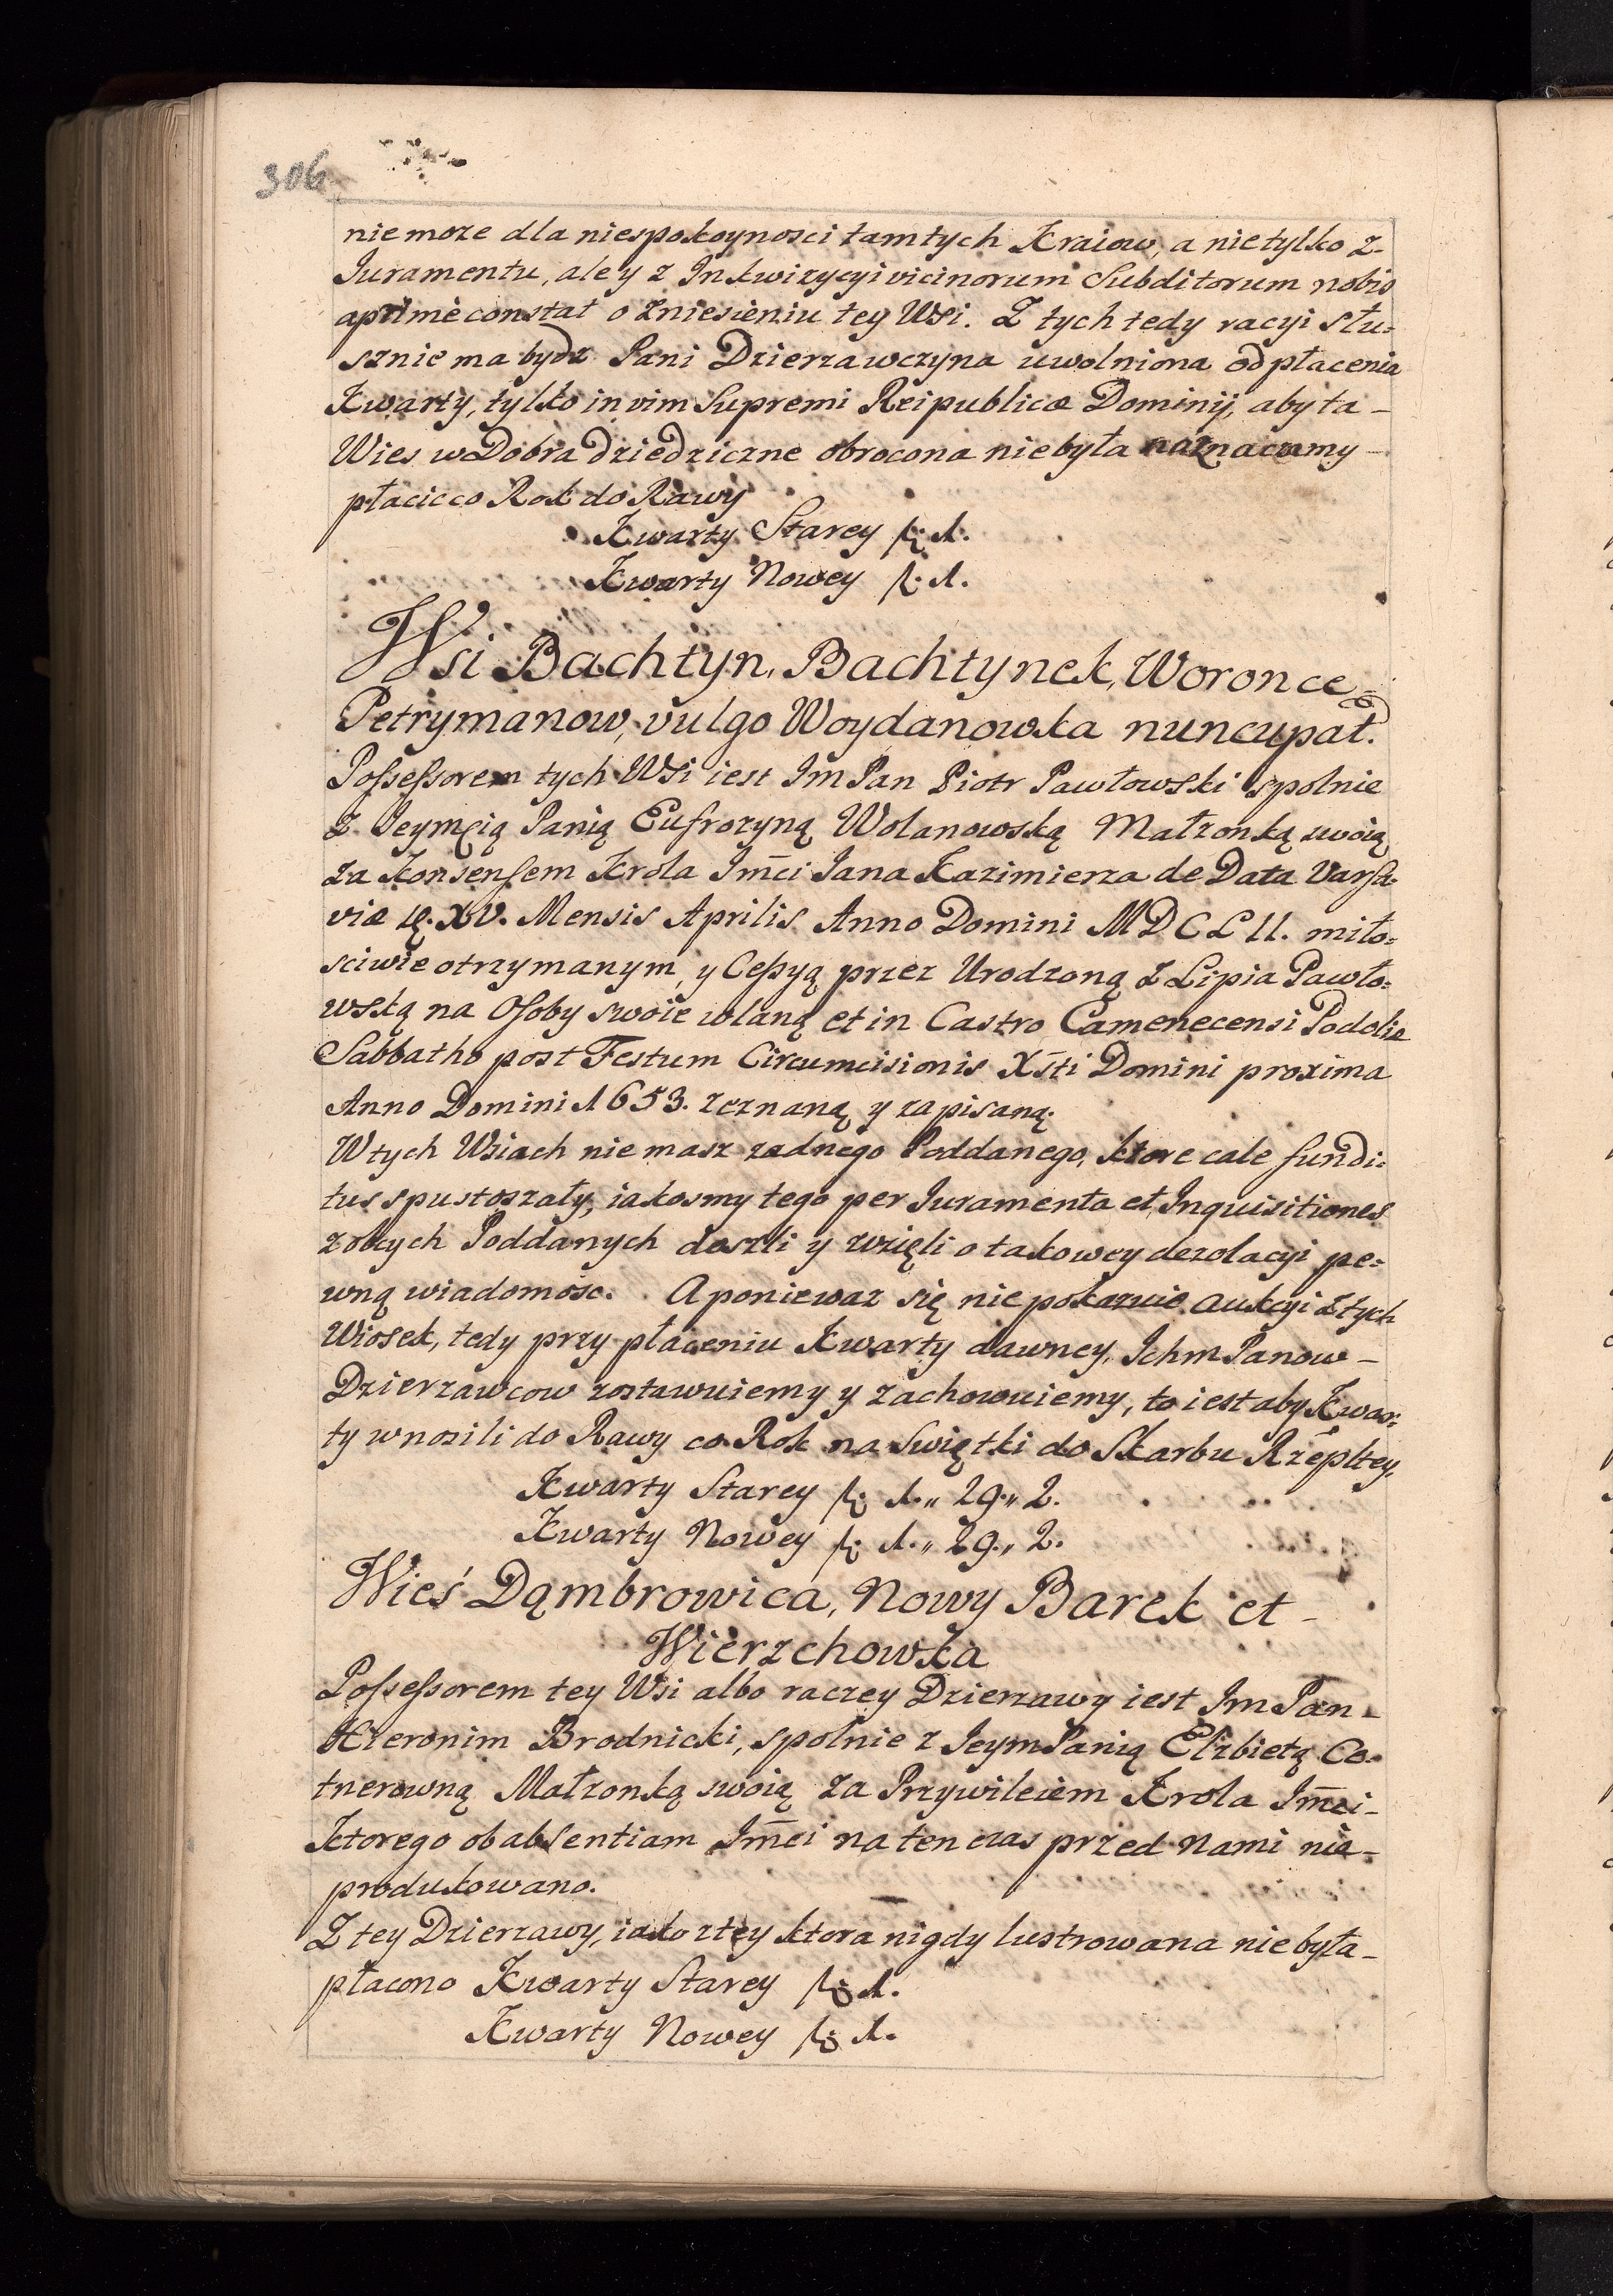 306
nie moze dla niespokoynosci tamtych Kraiow, a nie tylko z
Juramentu, ale y z Inkwizycyi vicinorum Subditorum nobis
aprimè constat o zniesieniu tey Wsi. Z tych tedy racyi słu=
sznie ma bydz Pani Dzierzawczyna uwolniona od płacenia
Kwarty, tylko in vim Supremi Reipublicæ Dominij, aby ta _
Wies w Dobra dziedziczne obrocona nie była naznaczamy _
płacic co Rok do Rawy
Kwarty Starey f: 1.
Kwarty Nowey f: 1.
Wsi Bachtyn, Bachtynek, Woronce
Petrymanow, vulgo Woydanowka nuncupat.
Possessorem tych Wsi iest Jm Pan Piotr Pawłowski spolnie
z Jeymcią Panią Eufrozyną Wolanowską Małzonką swoią
za Konsensem Krola Jm̄ci Jana Kazimierza de Data Varsa=
viæ XV. Mensis Aprilis Anno Domini MDCLII. miło=
sciwie otrzymanym, y Cessyą przez Urodzoną z Lipia Pawło=
wską na Osoby swoie wlaną et in Castro Camenecensi Podoliæ
Sabbatho post Festum Circumcisionis Xs̄ti Domini proxima
Anno Domini 1653. zeznaną y zapisaną.
W tych Wsiach nie masz zadnego Poddanego, ktore cale fundi=
tus spustoszały, iakosmy tego per Juramenta et Inquisitiones
z obcych Poddanych doszli y wzięli o takowey dezolacyi pe=
wną wiadomosc. A poniewaz się nie pokazuie aukcyi z tych
Wiosek, tedy przy płaceniu Kwarty dawney, Ichm Panow _
Dzierzawcow zostawuiemy y zachowuiemy, to iest aby Kwar=
ty wnosili do Rawy co Rok na Swiętki do Skarbu Rzēpltey,
Kwarty Starey f: 1.,, 29.,, 2.
Kwarty Nowey f: 1.,, 29.,, 2.
Wieś Dąmbrowica, Nowy Barek et _
Wierzchowka
Possessorem tey Wsi albo raczey Dzierzawy iest Jm Pan _
Hieronim Brodnicki, spolnie z Jeym Panią Elzbietą Ce=
tnerowną Małzonką swoią za Przywileiem Krola Jm̄ci _
ktorego ob absentiam Jm̄ci na ten czas przed nami nie _
produkowano.
Z tey Dzierzawy, iako z tey ktora nigdy lustrowana nie była _
płacono Kwarty Starey f: 1.
Kwarty Nowey f: 1.